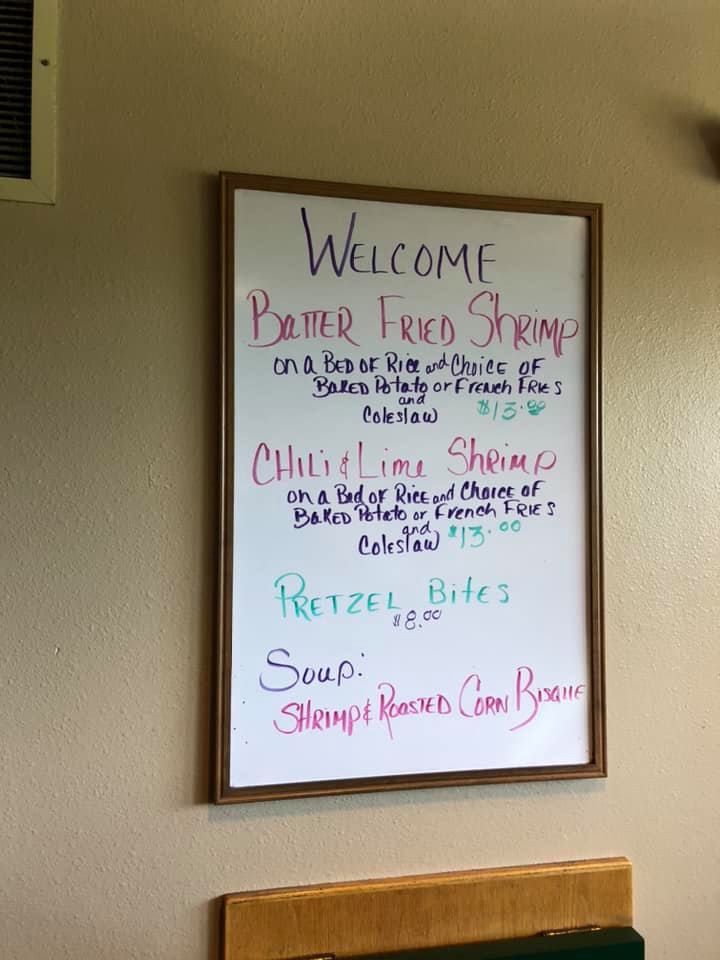 WELCOME
BATTER FRIED SHRIMP
on a BED OF RICE and CHOICE OF
BAKED Potato or FRENCH FRIES
and
Coleslaw $13.00
CHILI & Lime Shrimp
on a Bed OF RICE and CHOICE OF
BAKED Potato or French FRIES
and
Coleslaw $13.00
PRETZEL Bites
$8.00
Soup:
SHRIMP & ROASTED CORN BISQUE